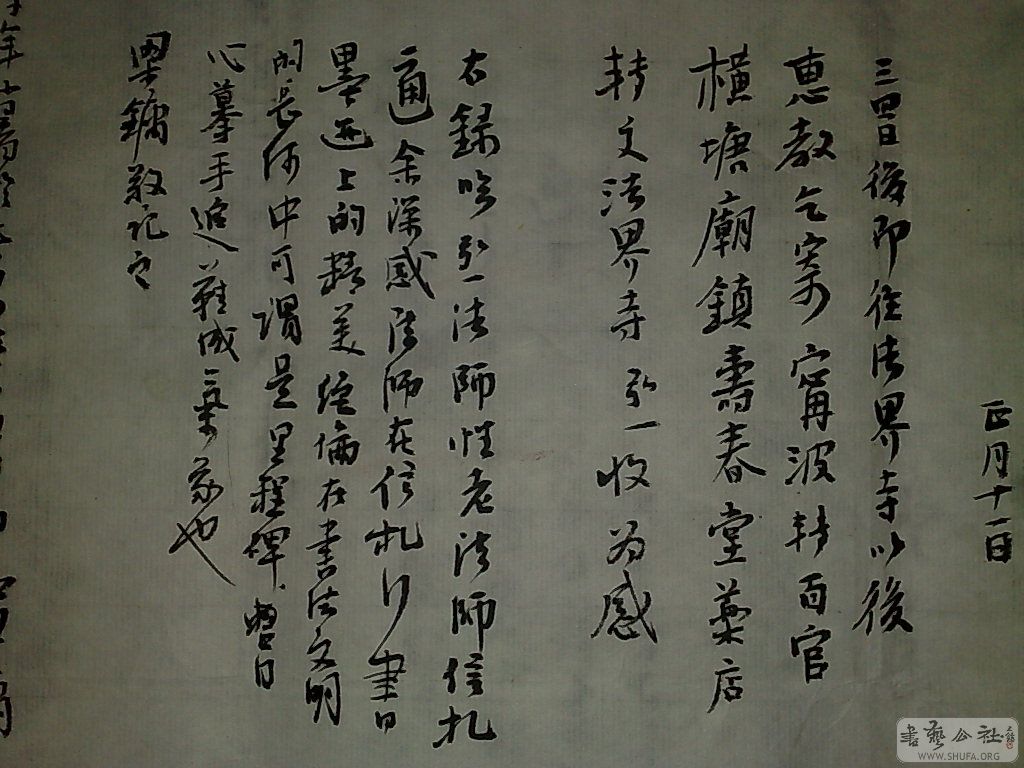 正月十一日
三四日後即往法界寺以後
惠教乞寄寧波轉百官
橫塘廟鎮壽春堂藥店
轉交法界寺弘一收為感
右錄臨弘一法師性老法師信札
通余深感法師在信札行書日
墨迹上的精美絕倫在書法文明
的長河中可謂是里程碑暫日
心摹手追難成氣象也
墨鏞敬記之
書藝公社
WWW.SHUFA.ORG